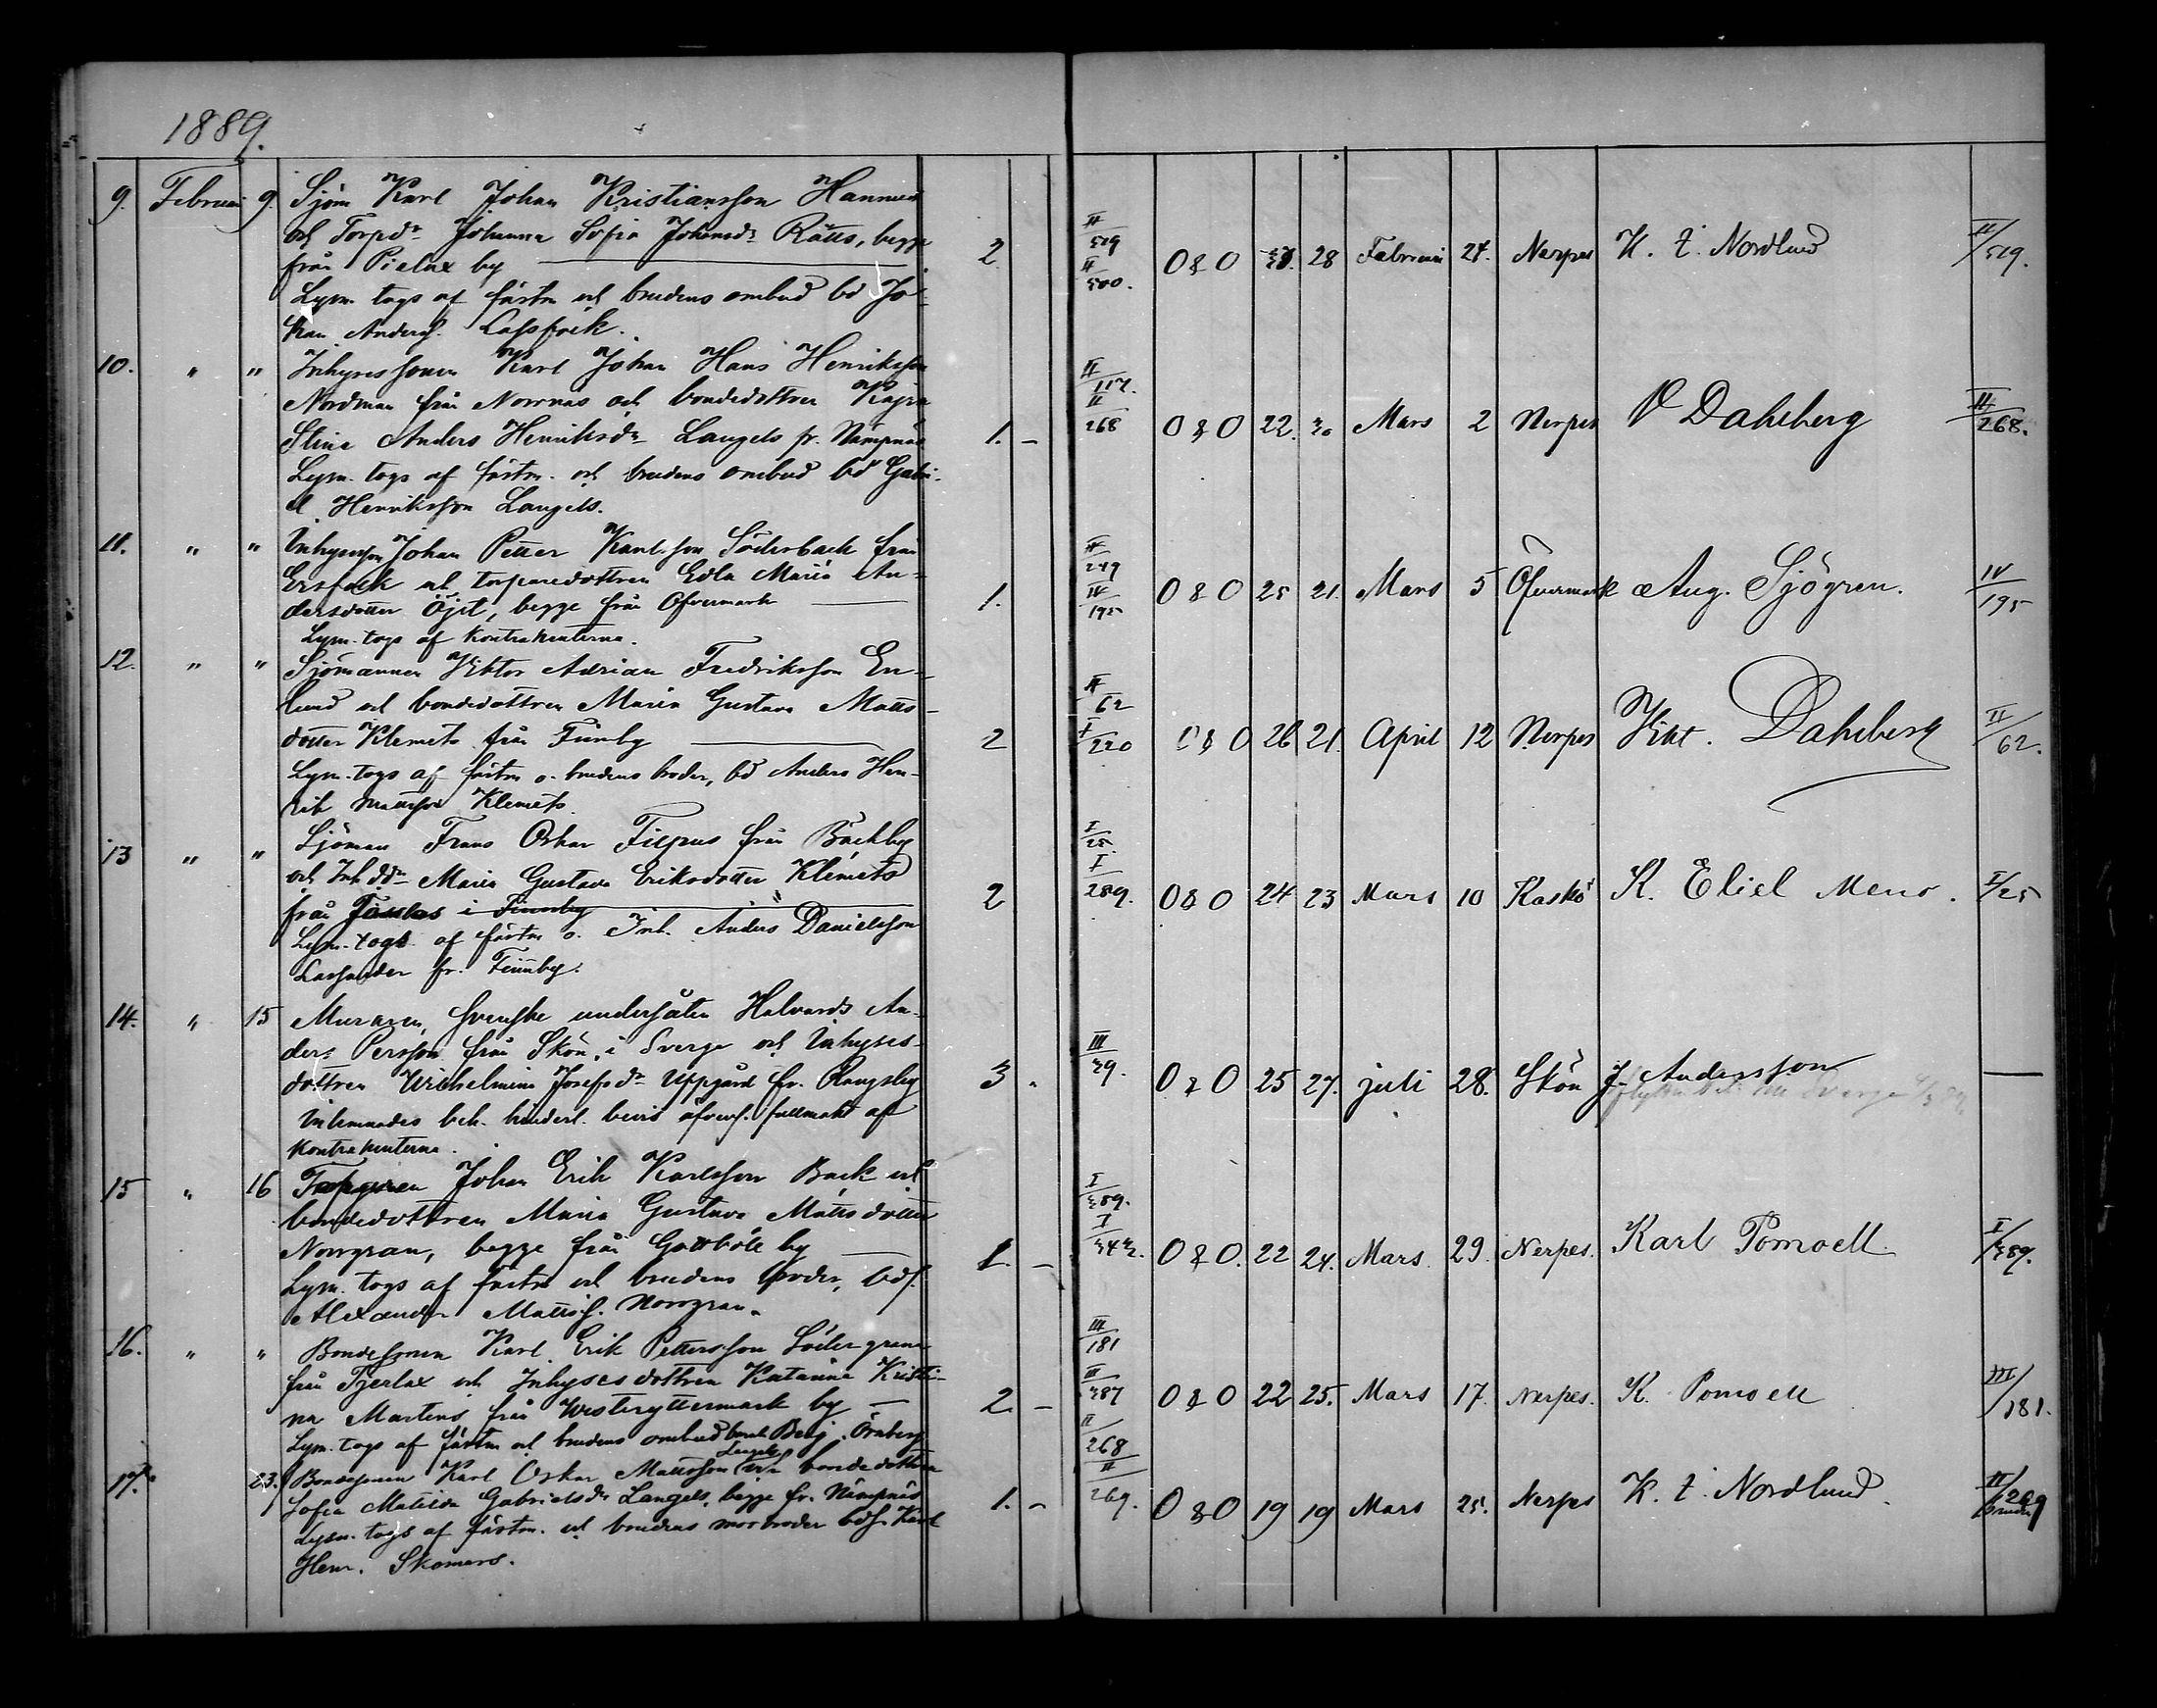 1889.
9. Februari 9. Sjöm Karl Johan Kristiansson Hannus
och Torpdr Johanna Sofia Johansdr Rätts, begge
från Pielax by 2. II/519 II/500. O & O 28 Februari 24. Nerpes K. I. Nordlund II/519.
Lysn. togs af fästm och brudens ombud bd Jo-
han Anderss. Lassfolk.
10. " " Inhysessonen Karl Johan Hans Henriksson
Nordman från Norrnäs och bondedottren Kajsa
Stina Anders Henriksdr Langels fr. Nämpnäs 1. - II/117. II/268 O & O 22. 20 Mars 2 Nerpes V Dahlberg II/268.
Lysn. togs af fästm. och brudens ombud bd Gabri-
el Henriksson Langels.
11. " " Inhysesson Johan Petter Karlsson Söderback från
Ersback och torparedottren Edla Maria An-
dersdotter Öjst, begge från Öfvermark 1. IV/249 IV/195 O & O 25 21. Mars 5 Öfvermark Aug. Sjögren. IV/195
Lysn. togs af kontrahenterna.
12. " " Sjömannen Viktor Adrian Fredriksson En-
lund och bondedottren Maria Gustava Matts-
dotter Klemets från Finby 2 II/62 I/220 O & O 26 21. April 12 Nerpes Vikt. Dahlberg II/62.
Lysn. togs af fästm o. brudens broder, bd Anders Hen-
rik Mattsson Klemets.
13 " " Sjöman Frans Oskar Filpus från Bäckby
och Inh.ddr Maria Gustava Eriksdotter Klemets
från i Finnby 2 I/25. I/289. O & O 24 23 Mars 10 Kaskö K. Eliel Meno. I/25
Lysn. togs af fästm o. Inh. Anders Danielsson
fr. Finnby.
14. " 15 Muraren, svenske undersåten Halvards An-
ders Persson från Skön, i Sverge och Inhyses-
dottren Wilhelmina Josefsdr Uppgård fr. Rangsby 3. III/39. O & O 25 27. juli 28. Skön J. Andersson —
Inlemnades beh. hinderl. bevis äfvens. fullmakt af
kontrahenterna.
15 " 16 Torparen Johan Erik Karlsson Back och
bondedottren Maria Gustava Mattsdotter
Norrgran, begge från Gottböle by 1. - I/389. I/342. O & O. 22 24. Mars. 29. Nerpes. Karl Pomoell. I/389.
Lysn. togs af fästm och brudens broder, bds.
Alexander Mattss. Norrgran.
16. " " Bondesonen Karl Erik Pettersson Södergrann
från Tjerlax och Inhysesdottren Katarina Kristi-
na Martens från Westeryttermark by 2. - III/181 III/387 O & O 22 25. Mars 17. Nerpes. K. Pomoell III/181.
Lysn. togs af fästm och brudens ombud Benj. Örnberg
17. " 23. Bondesonen Karl Oskar Mattsson Langels och bondedottren
Sofia Matilda Gabrielsdr Langels, begge fr. Nämpnäs 1. - II/268 II/269. O & O 19 19 Mars 25. Nerpes K. I. Nordlund. II/269
Lysn. togs af fästm. och brudens morbroder bds. Karl
Henr. Skomars.